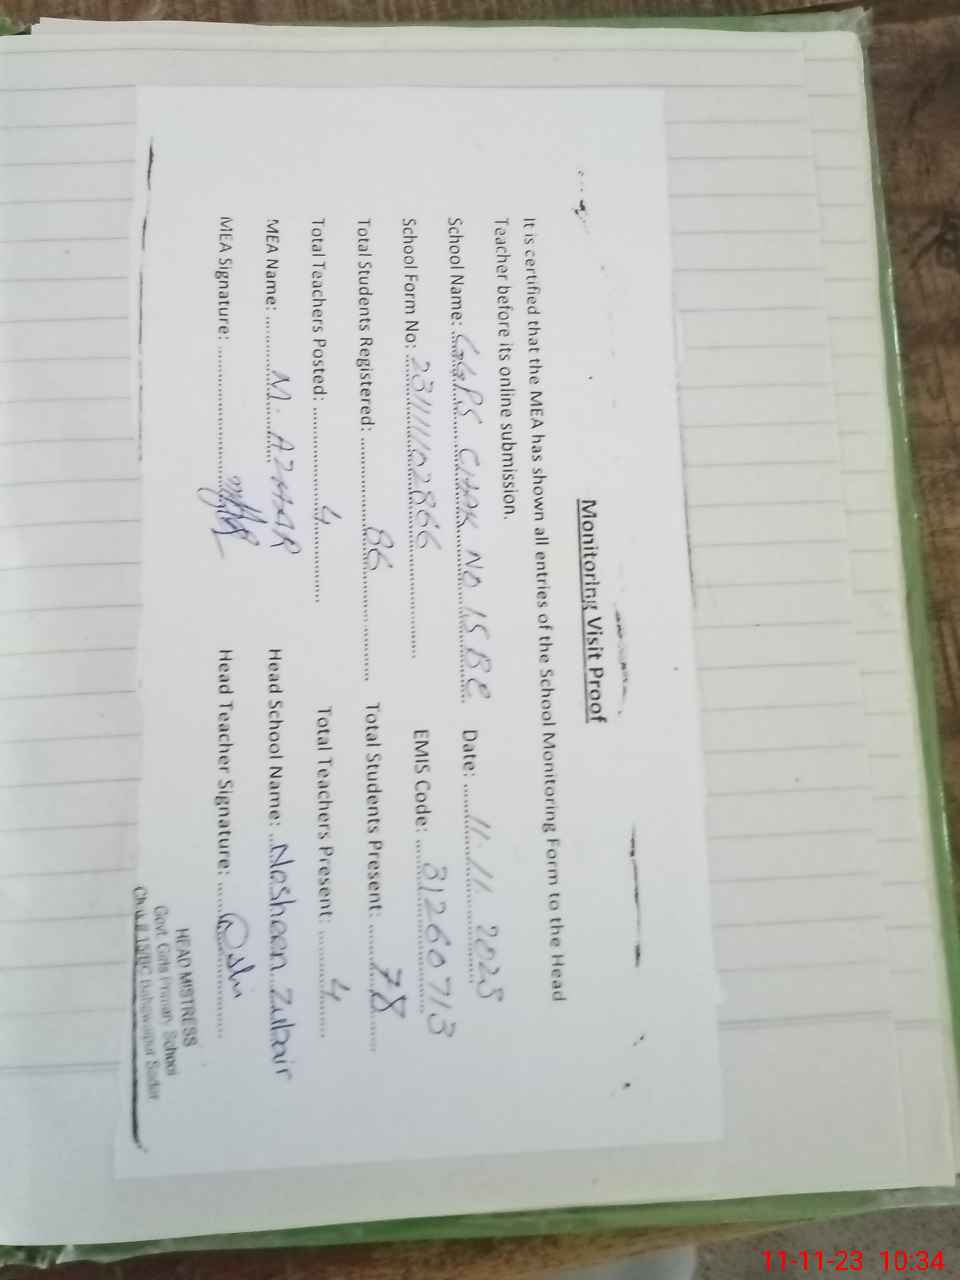 Monitoring Visit Proof
It is certified that the MEA has shown all entries of the School Monitoring Form to the Head
Teacher before its online submission.
School Name: GGPS CHAK NO 15 BC Date: 11.11.2023
School Form No: 231111102866 EMIS Code: 31260713
Total Students Registered: 86 Total Students Present: 78
Total Teachers Posted: 4 Total Teachers Present: 4
MEA Name: M. AZHAR Head School Name: Nosheen Zubair
MEA Signature: Head Teacher Signature:
HEAD MISTRESS
Govt. Girls Primary School
Chak # 15/BC Bahawalpur Sadar
11-11-23 10:34